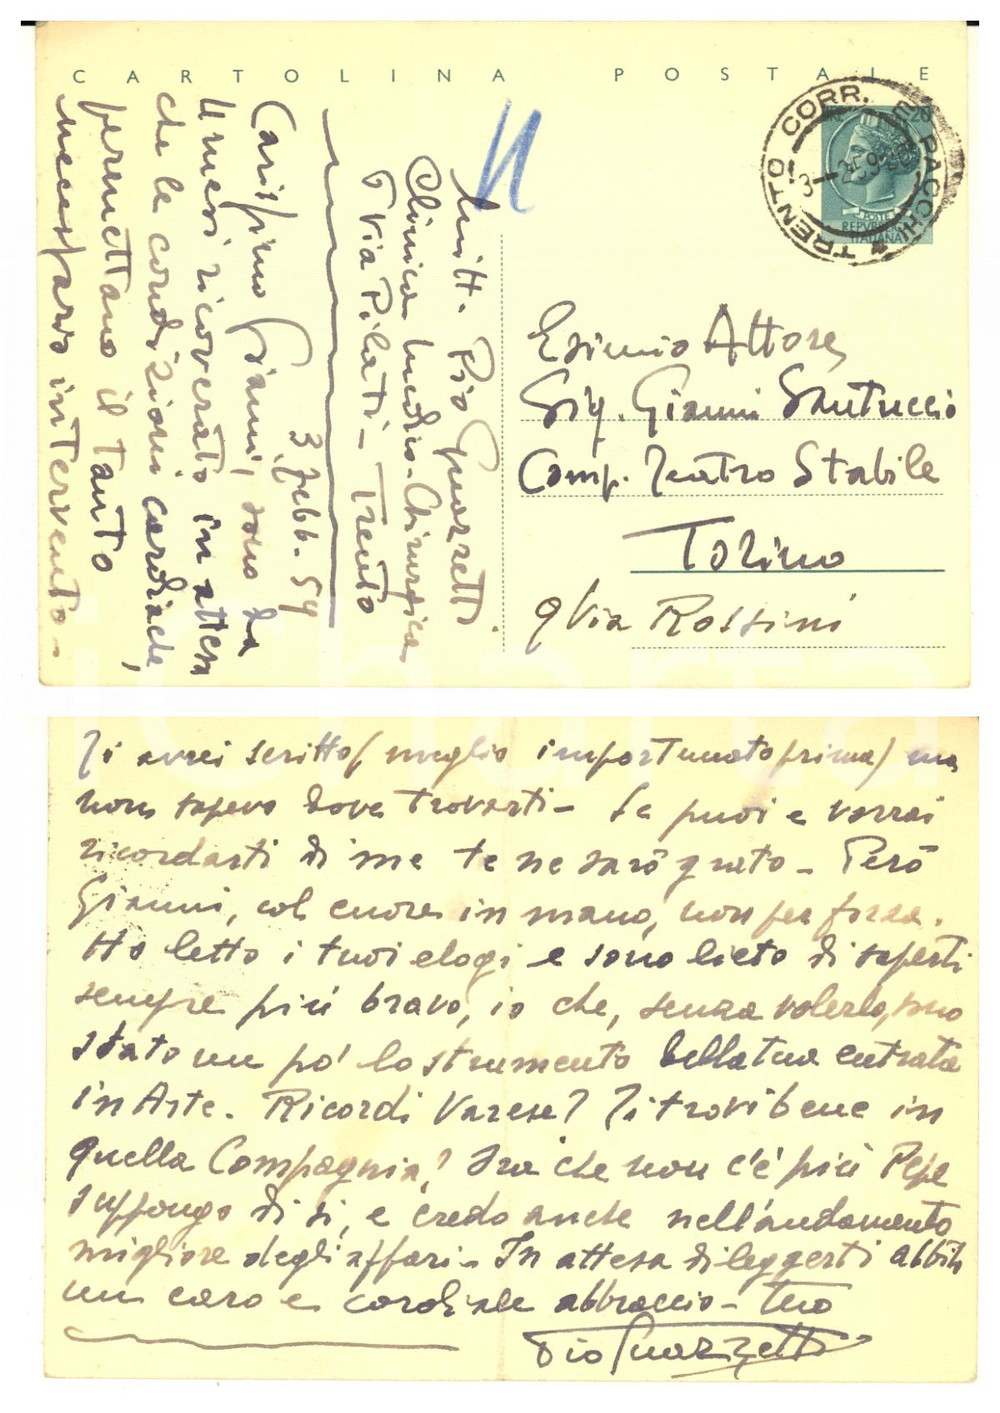 CARTOLINA POSTALE
TRENTO CORR. E PACCHI
3-2-59
LIRE 20
POSTE
REPVBBLICA
ITALIANA
Mitt. Pio Guazzetti.
Clinica Medico-Chirurgica
Via Pilati - Trento
3. Febb. 59
Carissimo Gianni, sono da
4 mesi ricoverato in attesa
che le condizioni cardiache,
permettano il tanto
necessario intervento -
Esimio Attore,
Sig. Gianni Santuccio
Comp. Teatro Stabile
Torino
9 Via Rossini
Ti avrei scritto (meglio importunato prima) ma
non sapevo dove trovarti - Se puoi e vorrai
ricordarti di me te ne sarò grato - Però
Gianni, col cuore in mano, non per forza.
Ho letto i tuoi elogi e sono lieto di saperti
sempre più bravo, io che, senza volerlo, sono
stato un po' lo strumento della tua entrata
in Arte. Ricordi Varese? Ti trovi bene in
quella Compagnia? Ora che non c'è più Pepe
suppongo di sì, e credo anche nell'andamento
migliore degli affari - In attesa di leggerti abbiti
un caro e cordiale abbraccio - tuo
Pio Guazzetti